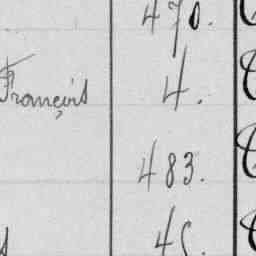 470.
François 4.
483.
45.